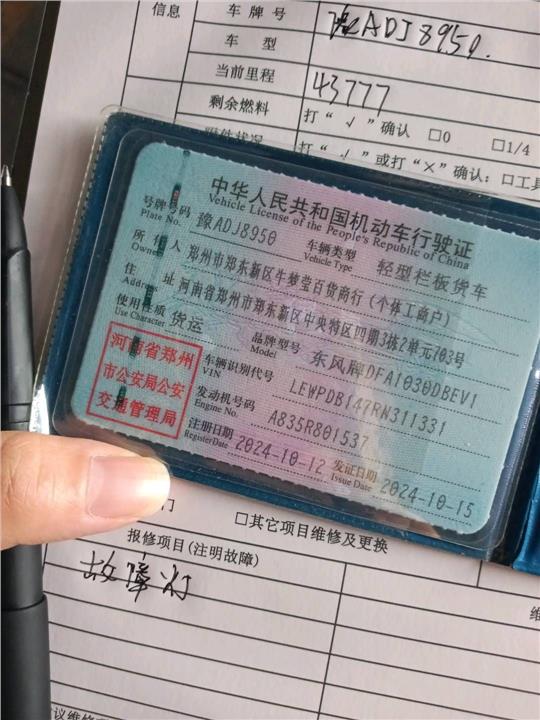 信息
车牌号 豫ADJ8950.
车型
当前里程 43777
剩余燃料 打“√”确认 □0 □1/4
打“√”或打“×”确认：□工具
中华人民共和国机动车行驶证
Vehicle License of the People's Republic of China
号牌号码 豫ADJ8950 车辆类型 轻型栏板货车
Plate No. Vehicle Type
所有人 郑州市郑东新区牛梦莹百货商行（个体工商户）
Owner
住址 河南省郑州市郑东新区中央特区四期3栋2单元703号
Address
使用性质 货运 品牌型号 东风牌DFA1030DBEV1
Use Character Model
河南省郑州
市公安局公安
交通管理局
车辆识别代号 LEWPDB147RW311331
VIN
发动机号码 A835R801537
Engine No.
注册日期 2024-10-12 发证日期 2024-10-15
Register Date Issue Date
门 □其它项目维修及更换
报修项目(注明故障)
故障灯
维
议维修